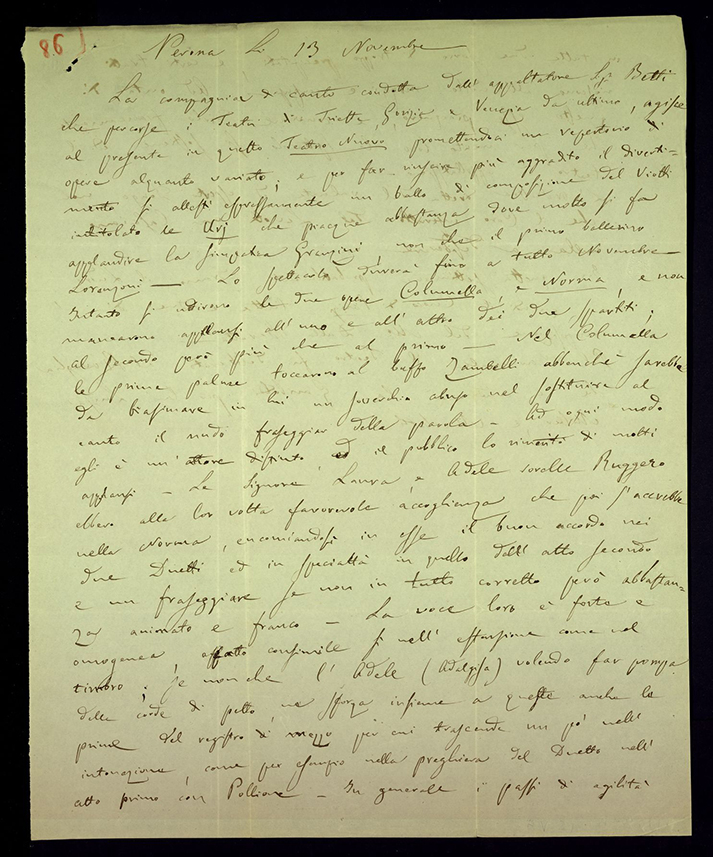 86
Verona Li 13 Novembre
La compagnia di canto condotta dall' appaltatore Sig. Betti
che percorse i Teatri di Trieste Gorizia e Venezia da ultimo, agisce
al presente in questo Teatro Nuovo, promettendo un repertorio di
opere alquanto variato; e per far riuscire più aggradito il diverti=
mento si allestì espressamente un ballo di composizione del Viotti
intitolato le Urì che piacque abbastanza dove molto si fa
applaudire la simpatica Granzini, non che il primo ballerino
Lorenzoni — Lo spettacolo durerà fino a tutto Novembre —
Intanto si udirono le due opere Columella, e Norma, e non
mancarono applausi all' uno e all' altro dei due spartiti;
al secondo però più che al primo — Nel Columella
le prime palme toccarono al buffo Zambelli abbenchè sarebbe
da biasimare in lui un soverchio abuso nel sostituire al
canto il nudo fraseggiar della parola — Ad ogni modo
egli è un' attore distinto, ed il pubblico lo di molti
applausi — Le Signore Laura, e Adele sorelle Ruggero
ebbero alla lor volta favorevole accoglienza che poi s'accrebbe
nella Norma, encomiandosi in esse il buon accordo nei
due Duetti ed in specialtà in quello dell' atto secondo
e un fraseggiare se non in tutto corretto però abbastan=
za animato e franco — La voce loro è forte e
omogenea affatto consimile sì nell' estensione come nel
timbro; se non che l' Adele (Adalgisa) volendo far pompa
delle corde di petto, ne sforza insieme a queste anche le
prime del registro di mezzo per cui trascende un pò nell'
intonazione, come per esempio nella preghiera del Duetto nell'
atto primo con Pollione — In generale i passi di agilità